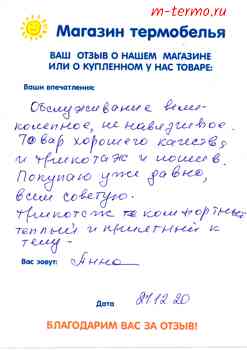 m-termo.ru
Магазин термобелья
ВАШ ОТЗЫВ О НАШЕМ МАГАЗИНЕ
ИЛИ О КУПЛЕННОМ У НАС ТОВАРЕ:
Ваши впечатления:
Обслуживание вели-
колепное, не навязчивое.
Товар хорошего качества
и трикотаж и пошив.
Покупаю уже давно,
всем советую.
трикотаж комфортный
теплый и приятный к
телу -
Вас зовут: Анна
Дата 21.12.20
БЛАГОДАРИМ ВАС ЗА ОТЗЫВ!